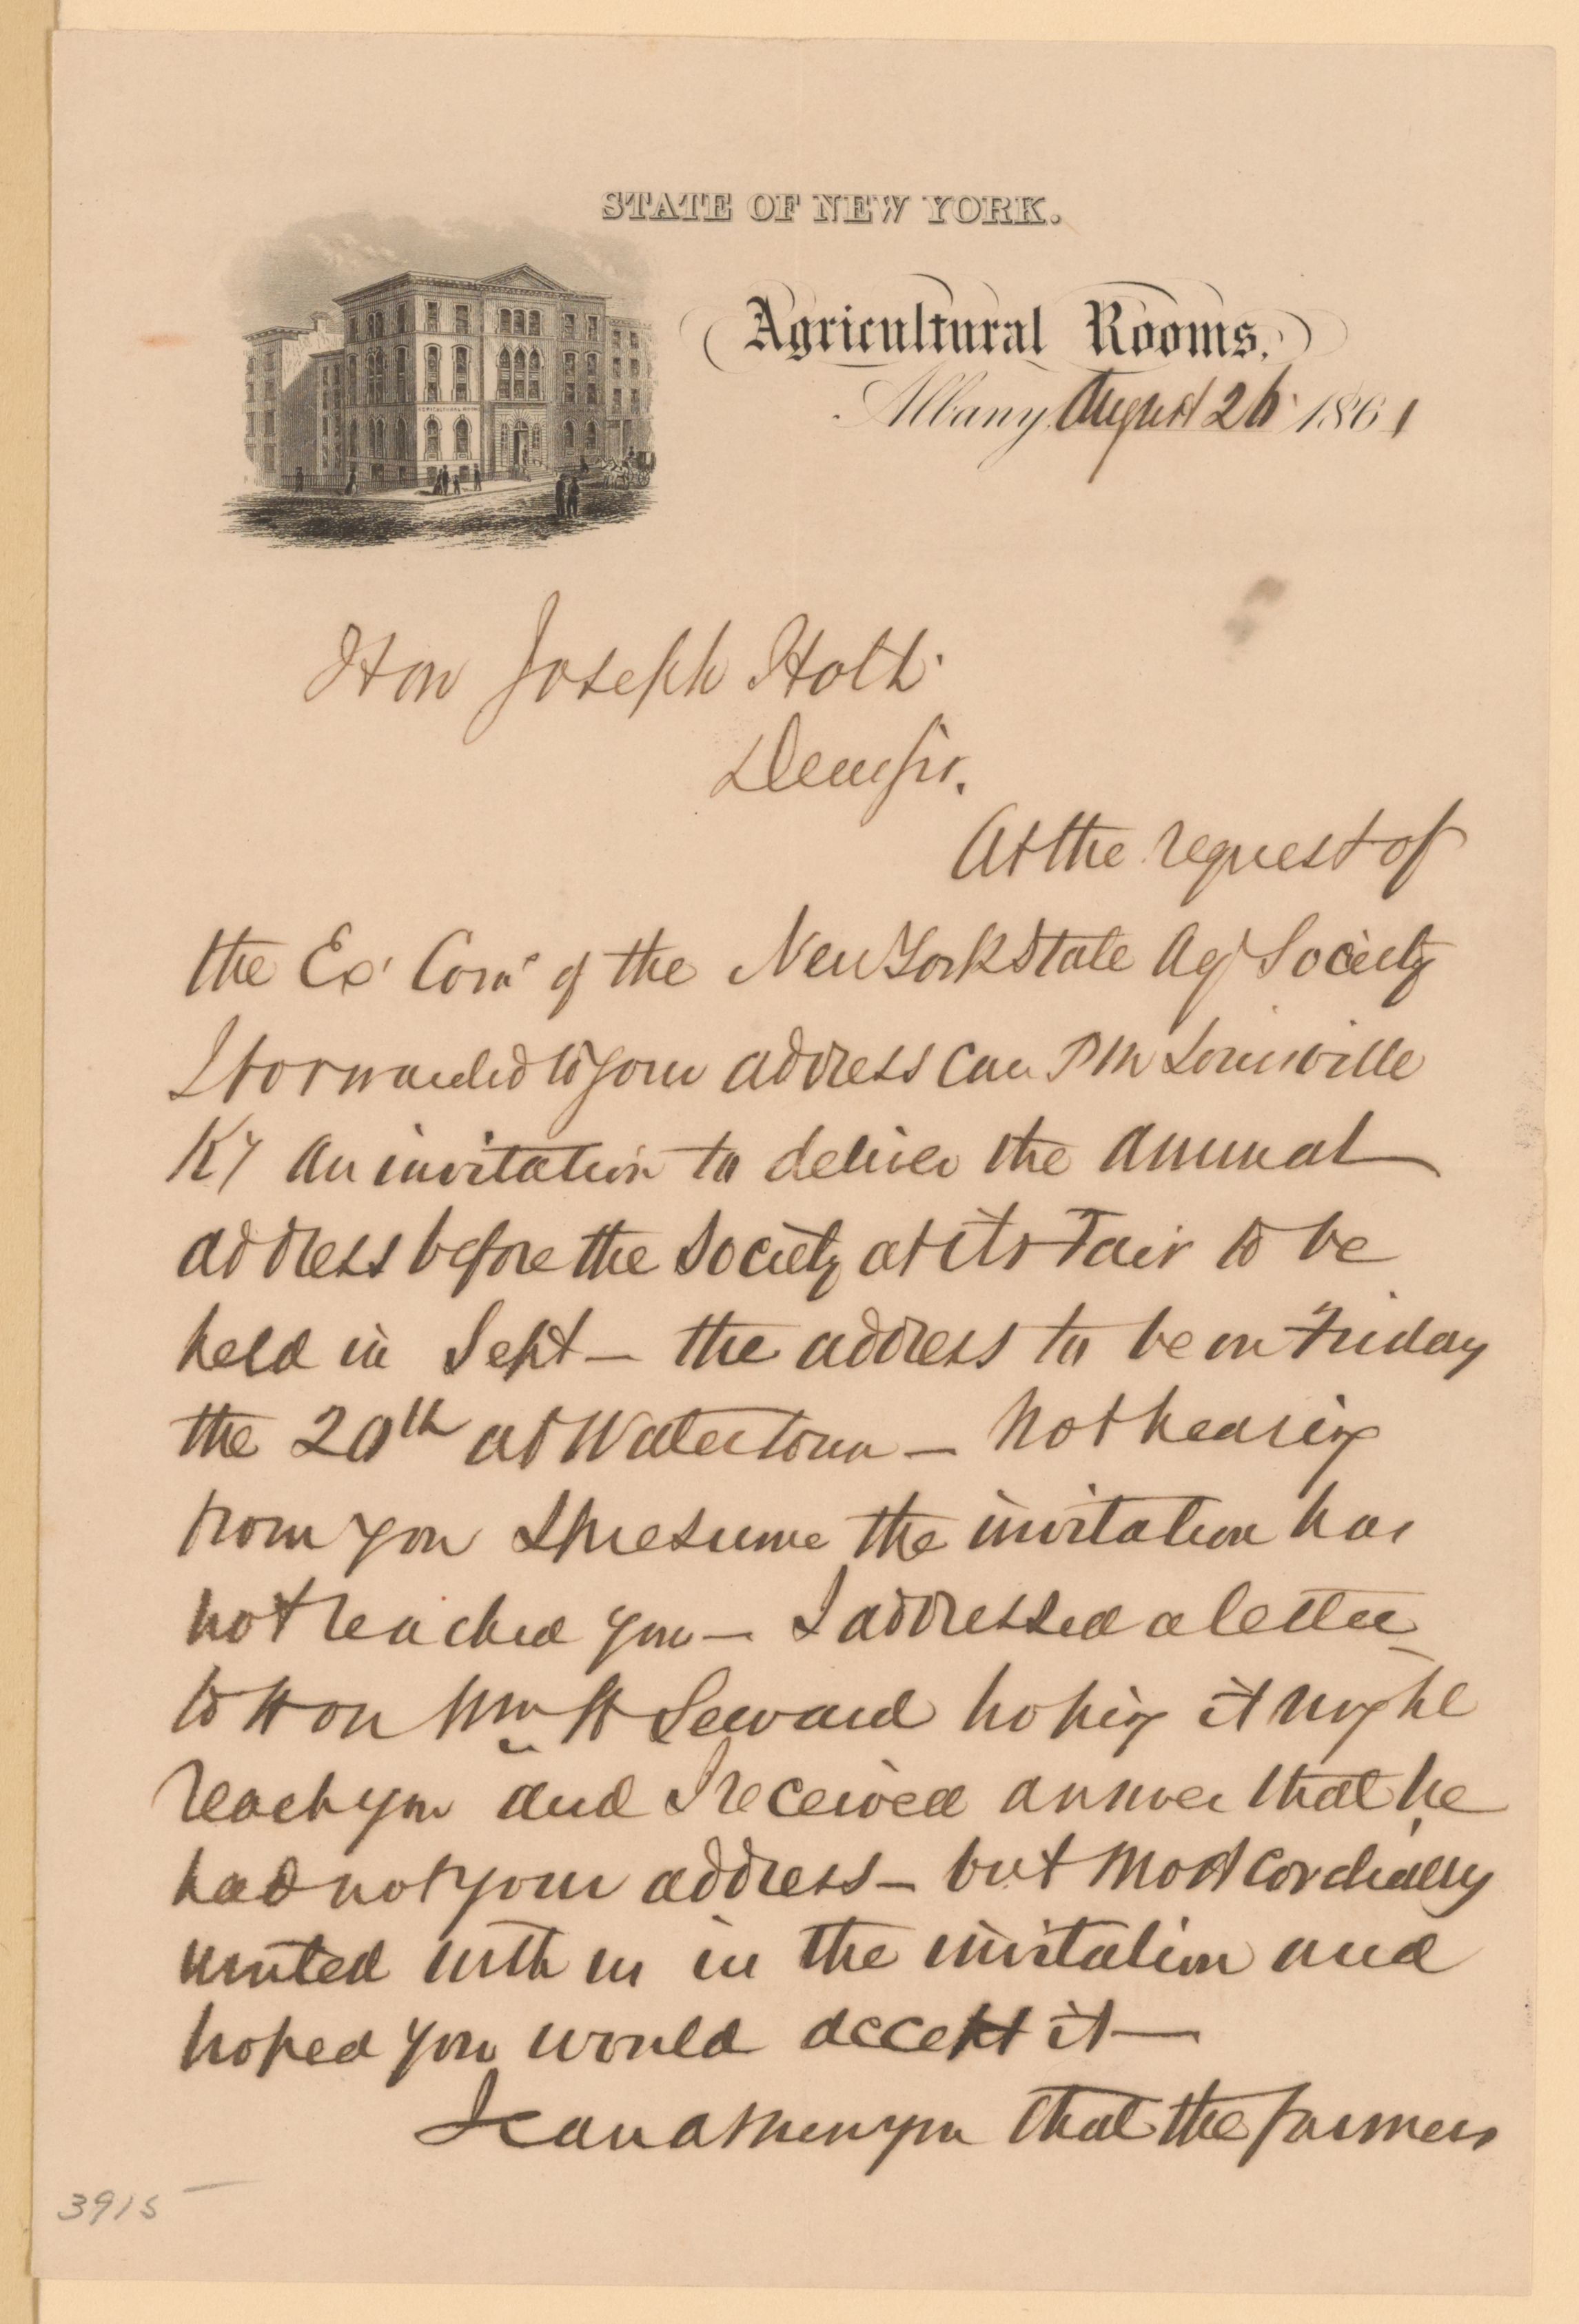 STATE OF NEW YORK.
Agricultural Rooms.
Albany, August 26 1861
Hon Joseph Holt
Dear Sir.
At the request of
the Ex. Com. of the New York State Ag Society
I forwarded to your address care P M Louisville
Ky an invitation to deliver the annual
address before the Society at its Fair to be
held in Sept — the address to be on Friday
the 20th at Watertown — Not hearing
from you I presume the invitation has
not reached you — I addressed a letter
to Hon Wm H Seward hoping it might
reach you and I received answer that he
had not your address — but most cordially
united with us in the invitation and
hoped you would accept it —
I can assure you that the farmers
3915